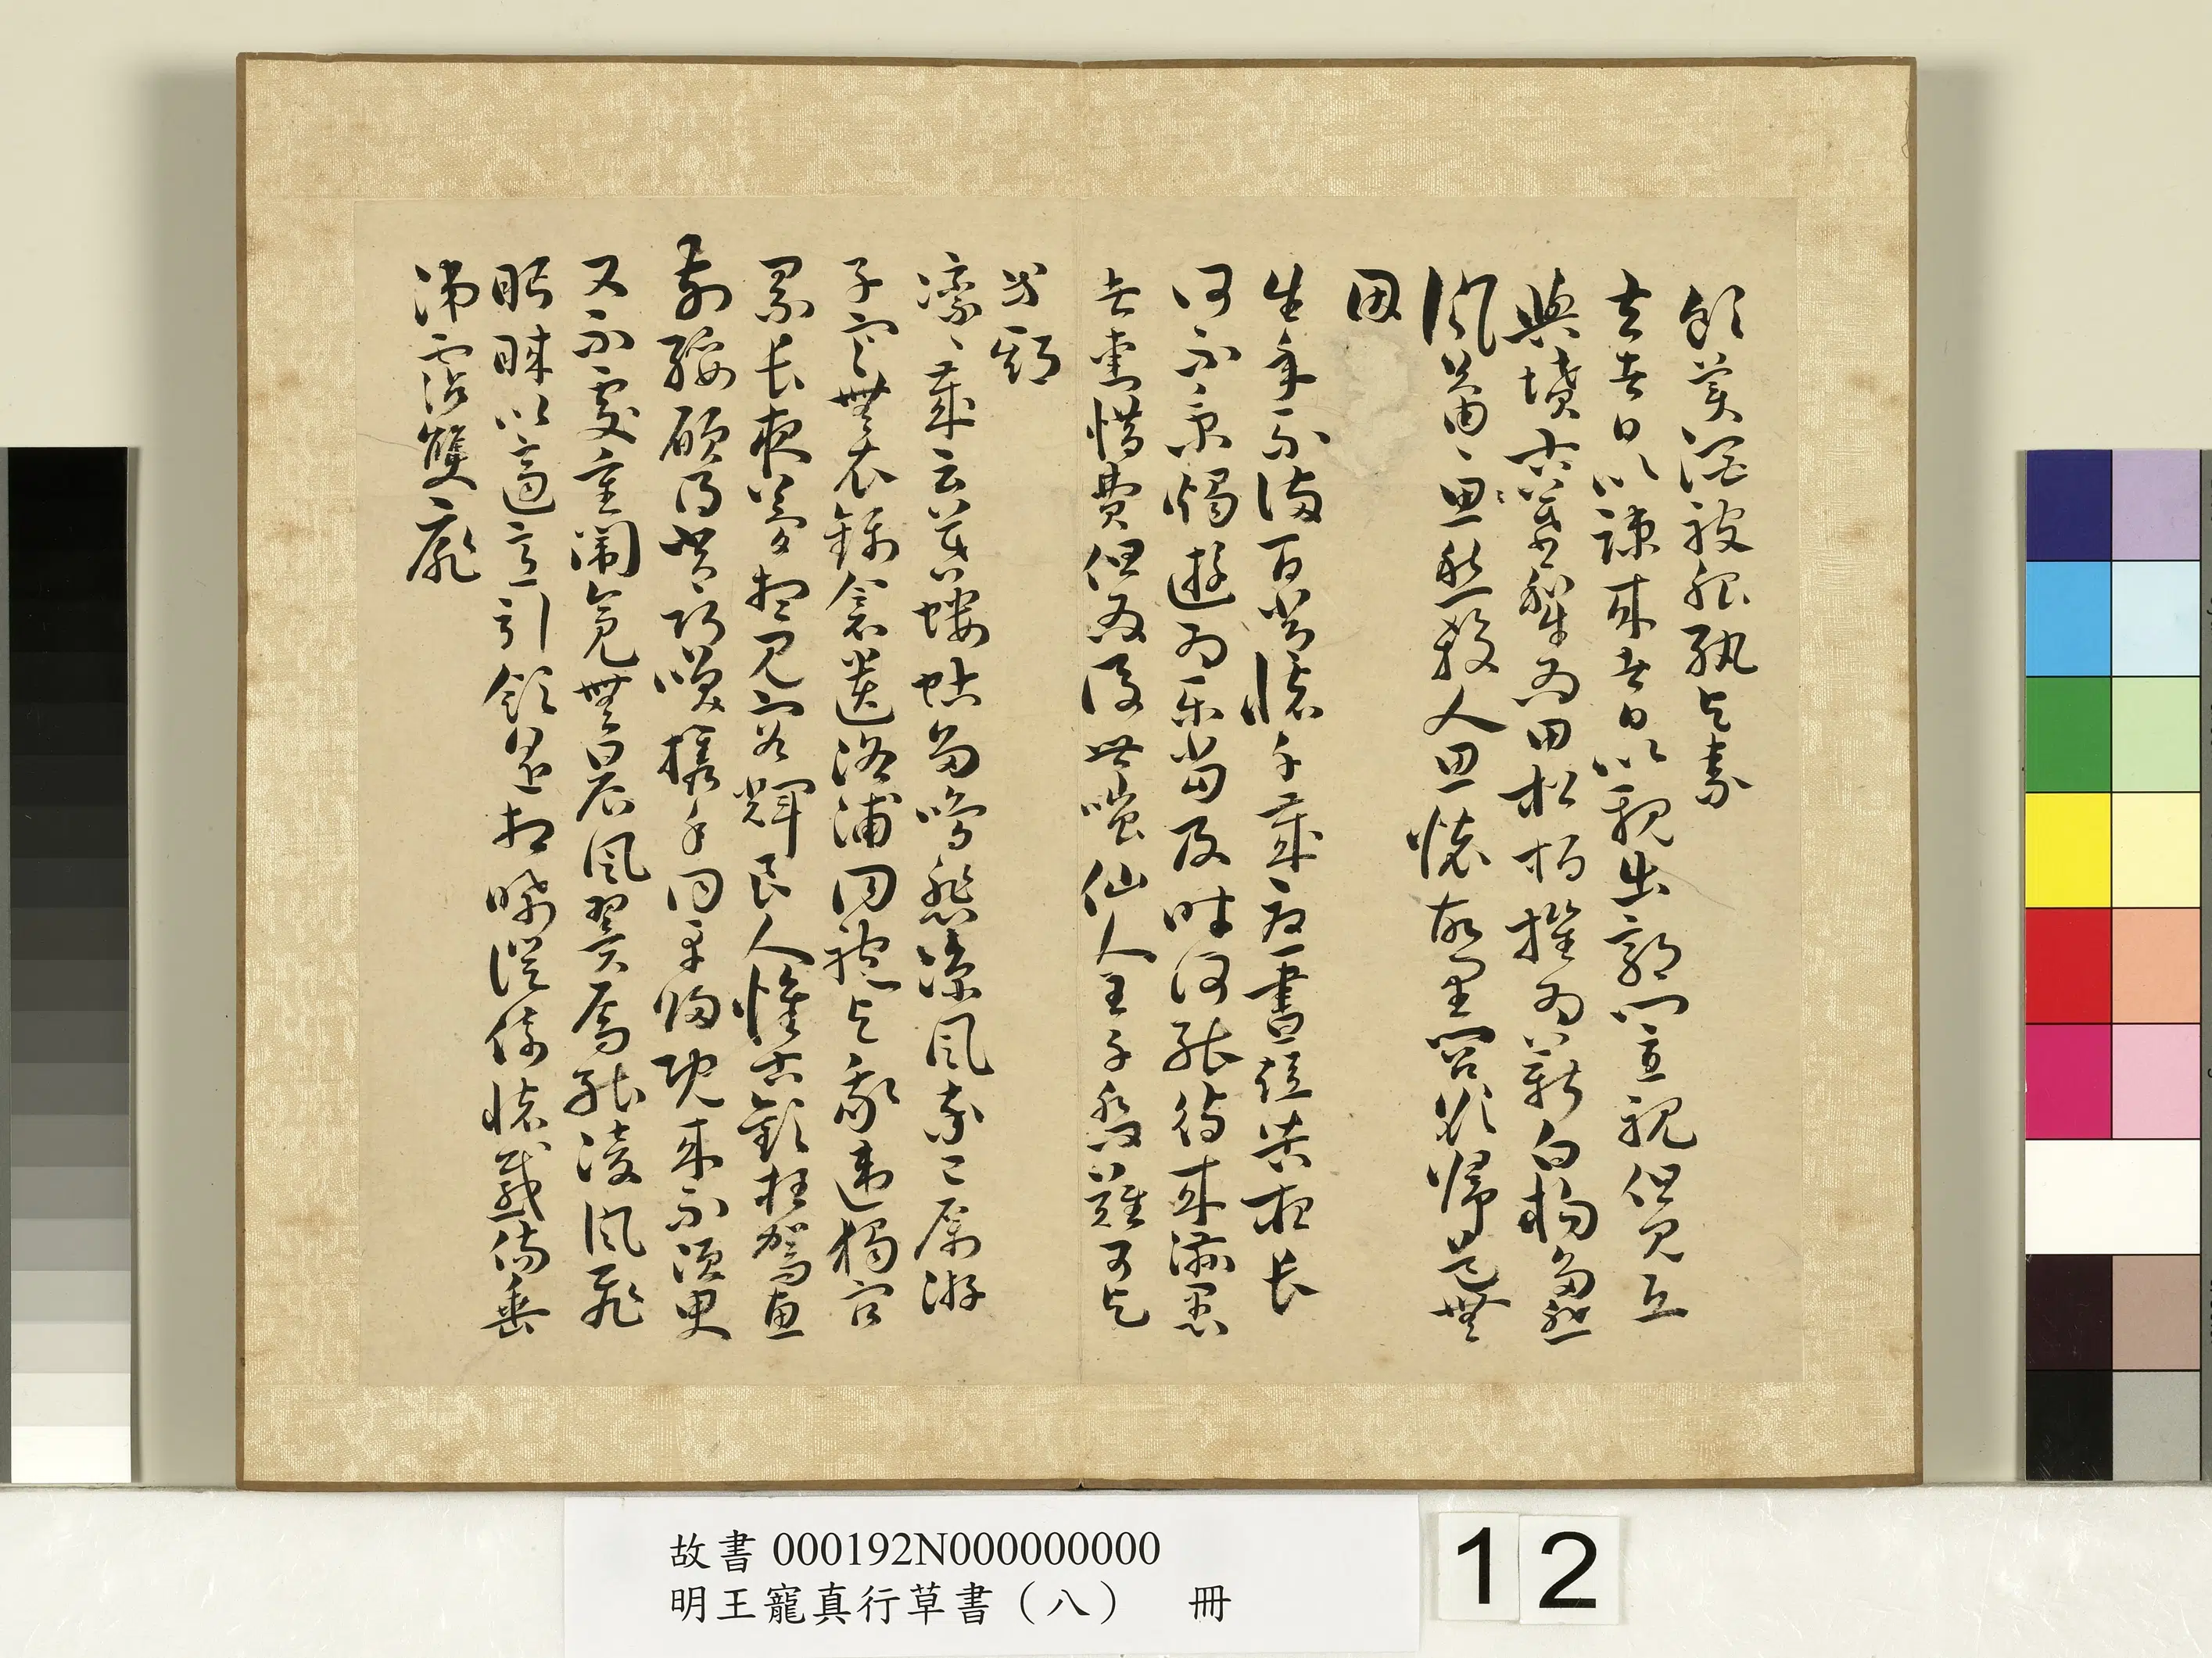 飲美酒被服紈與素
去者日以疎来者日以親出郭門直視但見丘
與墳古墓犂為田松柏摧為薪白楊多悲
風蕭、思愁殺人思懷故里閭欲歸道無
因
生年不滿百常懷千歲憂晝短苦夜長
何不秉燭遊為樂當及時何能待来茲愚
者愛惜費但為後世嗤仙人王子喬難可與
等期
凛、歲云莫螻蛄多鳴悲凉風率已厲游
子寒無衣錦衾遺洛浦同袍與我違獨宿
累長夜夢想見容輝良人惟古歡枉駕惠
前綏願得常巧笑攜手同車歸既来不須臾
又不處重闈亮無晨風翼焉能凌風飛
眄睞以適意引領遙相睎徙倚懷感傷垂
涕霑雙扉
故書 000192N000000000
明王寵真行草書（八） 冊
12